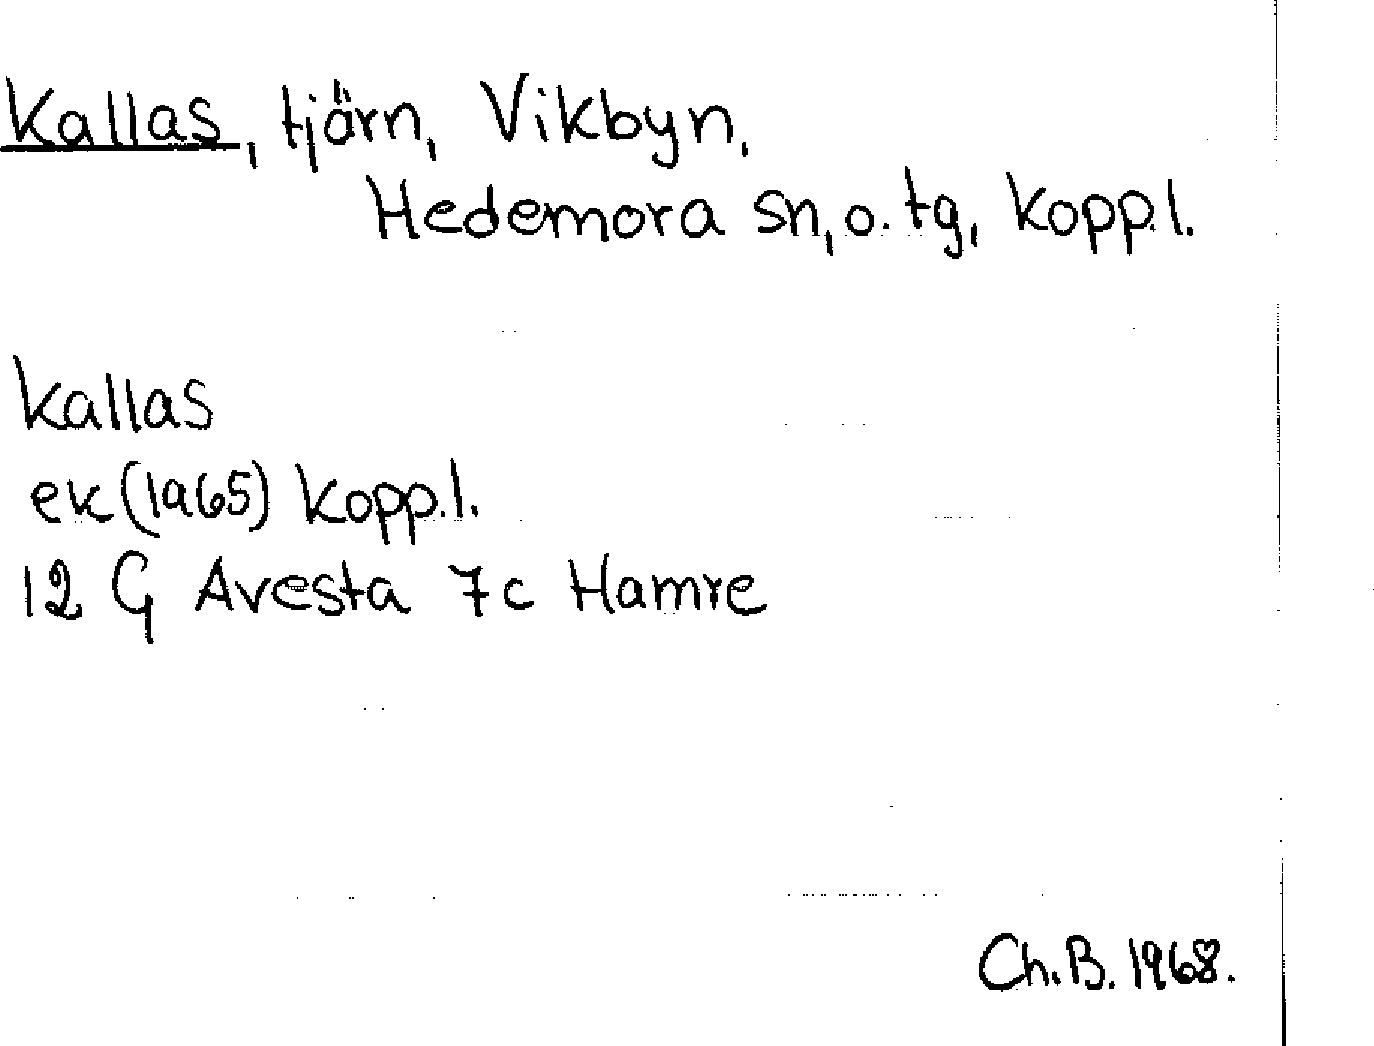 Kallas, tjärn, Vikbyn,
Hedemora sn, o. tg, Kopp.l.
Kallas
ek (1965) Kopp.l.
12 G Avesta 7c Hamre
Ch.B. 1968.